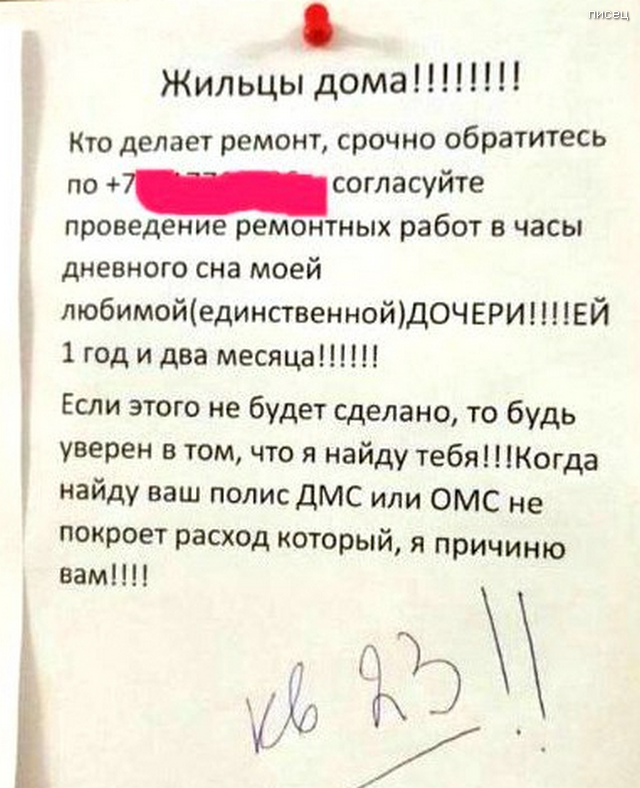 писец
Жильцы дома!!!!!!!!
Кто делает ремонт, срочно обратитесь
по +7 согласуйте
проведение ремонтных работ в часы
дневного сна моей
любимой(единственной)ДОЧЕРИ!!!!ЕЙ
1 год и два месяца!!!!!!
Если этого не будет сделано, то будь
уверен в том, что я найду тебя!!!Когда
найду ваш полис ДМС или ОМС не
покроет расход который, я причиню
вам!!!!
кв 23!!